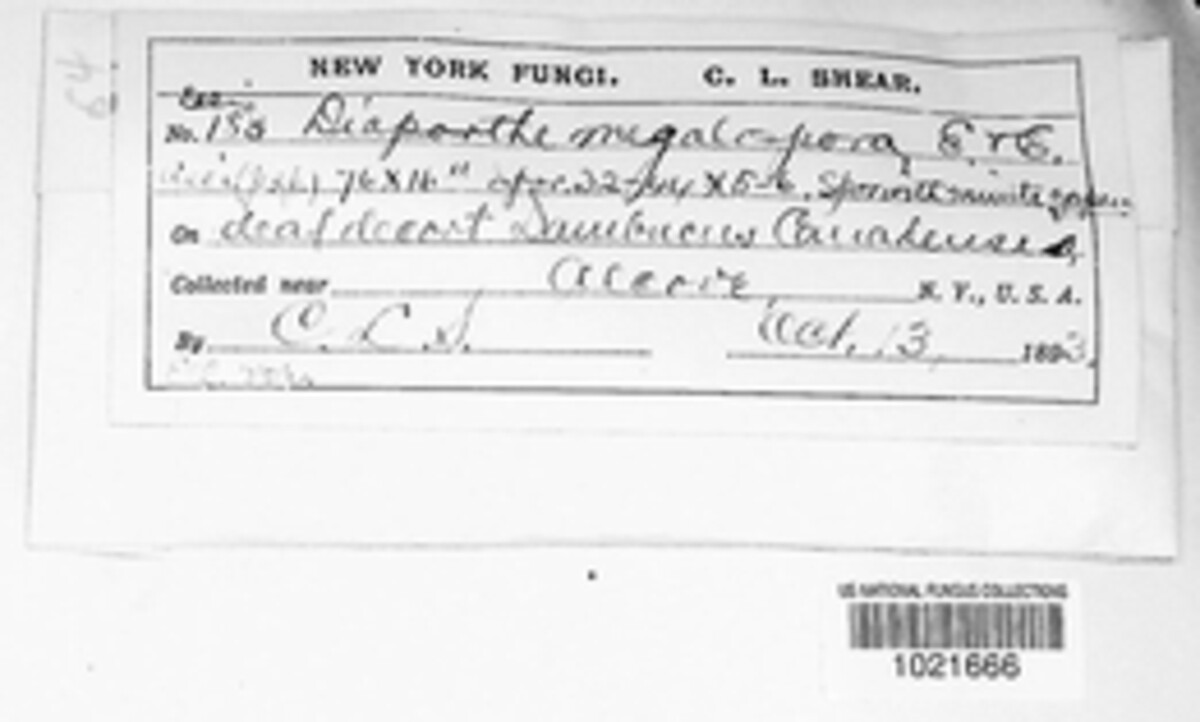 NEW YORK FUNGI. C. L. SHEAR.
Exs.
No. 155 Diaporthe megalospora, E. & E.
76 X 16 spor. 22-24 X 5-6. Spor with minute
On dead decort Sambucus Canadensis
Collected near Alcove N. Y., U. S. A.
By C. L. S. Oct. 13, 1893.
US NATIONAL FUNGUS COLLECTIONS
1021666